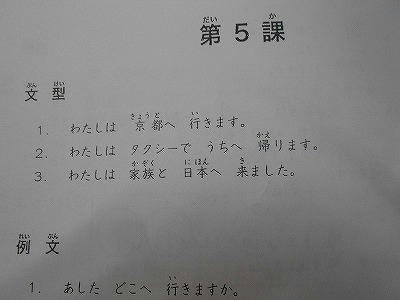 第5課
文型
1. わたしは 京都へ 行きます。
2. わたしは タクシーで うちへ 帰ります。
3. わたしは 家族と 日本へ 来ました。
例文
1. あした どこへ 行きますか。